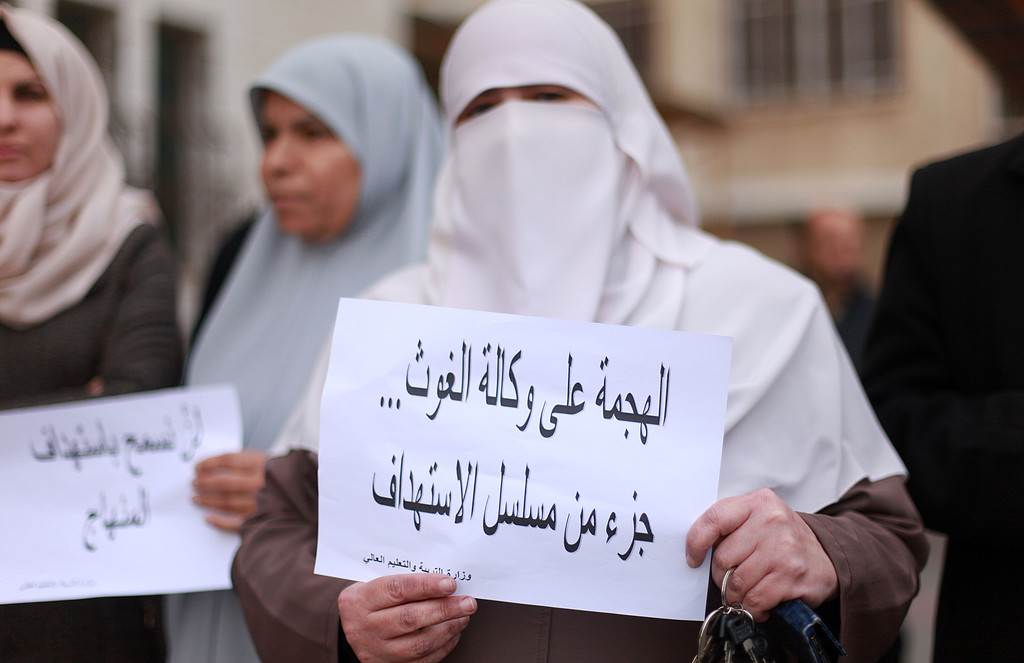 الهجمة على وكالة الغوث...
جزء من مسلسل الاستهداف
وزارة التربية والتعليم العالي
لن نسمح باستهداف
المنهاج